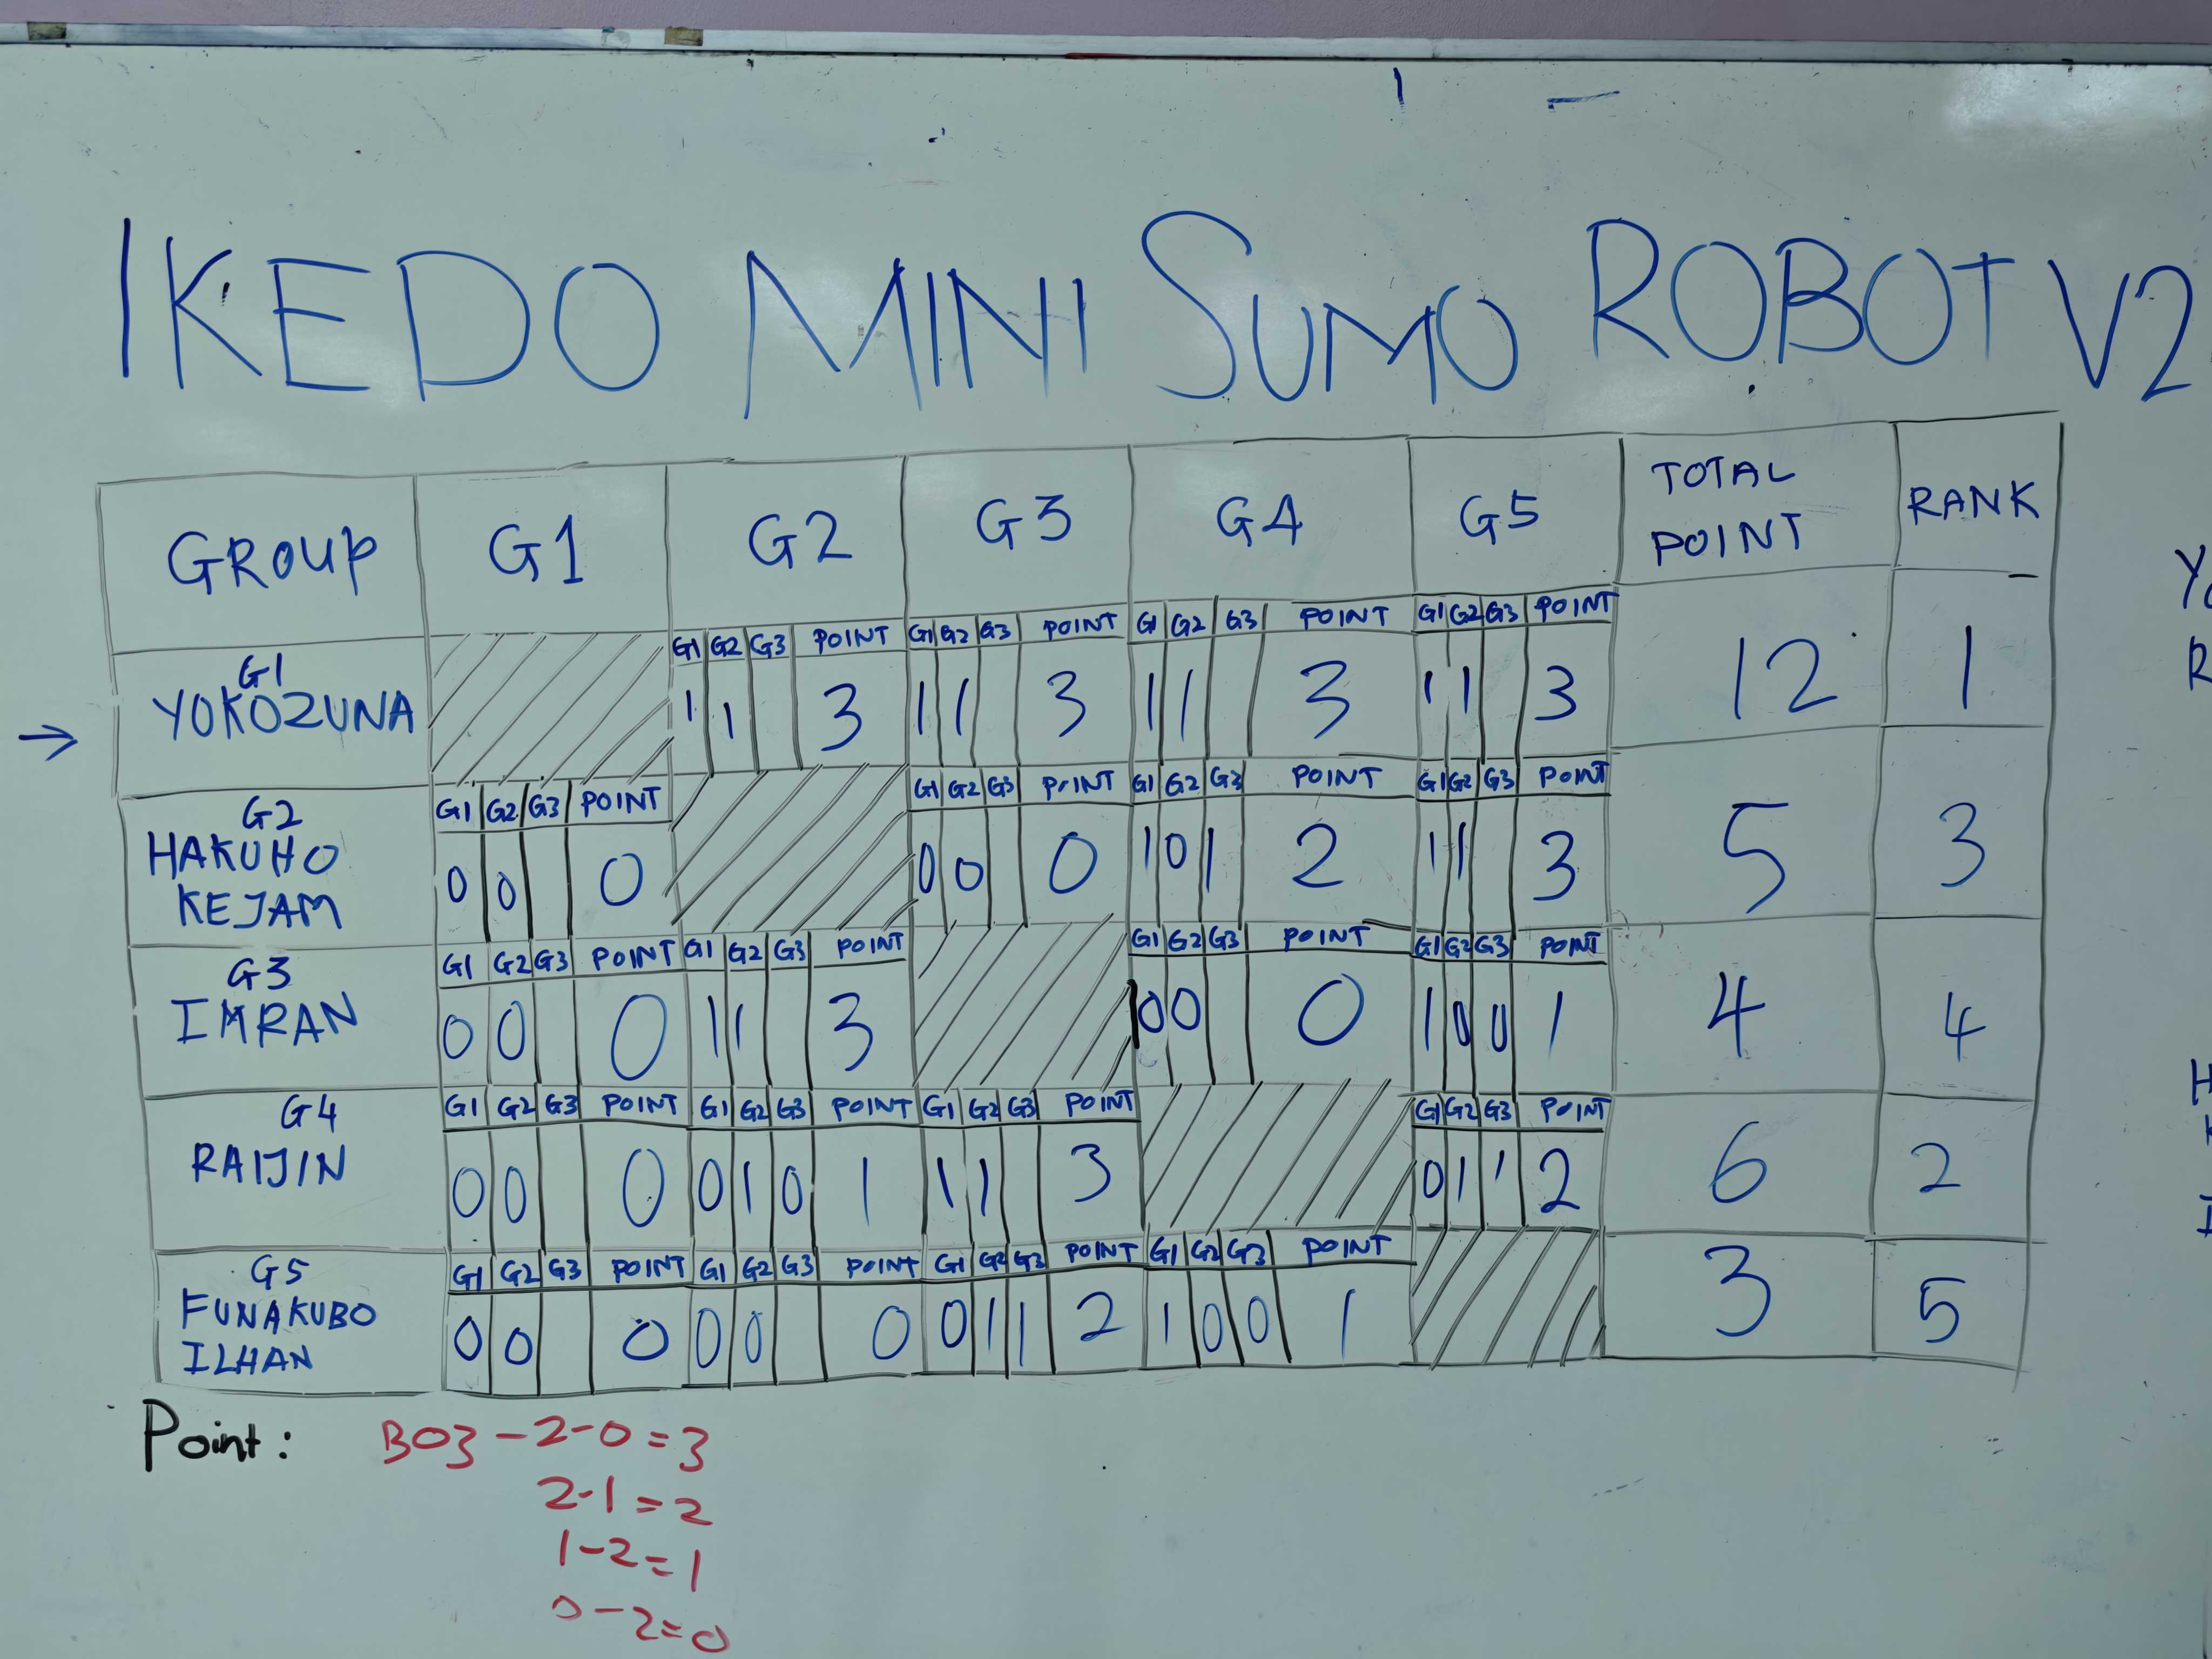 IKEDO MINI SUMO ROBOT V2
GROUP G1 G2 G3 G4 G5 TOTAL POINT RANK
G1 G2 G3 POINT G1 G2 G3 POINT G1 G2 G3 POINT G1 G2 G3 POINT
G1 YOKOZUNA 1 1 3 1 1 3 1 1 3 1 1 3 12 1
→
G1 G2 G3 POINT G1 G2 G3 POINT G1 G2 G3 POINT G1 G2 G3 POINT
G2 HAKUHO KEJAM 0 0 0 0 0 0 1 0 1 2 1 1 3 5 3
G1 G2 G3 POINT G1 G2 G3 POINT G1 G2 G3 POINT G1 G2 G3 POINT
G3 IMRAN 0 0 0 1 1 3 0 0 0 1 0 0 1 4 4
G1 G2 G3 POINT G1 G2 G3 POINT G1 G2 G3 POINT G1 G2 G3 POINT
G4 RAIJIN 0 0 0 0 1 0 1 1 1 3 0 1 1 2 6 2
G1 G2 G3 POINT G1 G2 G3 POINT G1 G2 G3 POINT G1 G2 G3 POINT
G5 FUNAKUBO ILHAN 0 0 0 0 0 0 0 1 1 2 1 0 0 1 3 5
Point: BO3 - 2-0 = 3
2-1 = 2
1-2 = 1
0-2 = 0